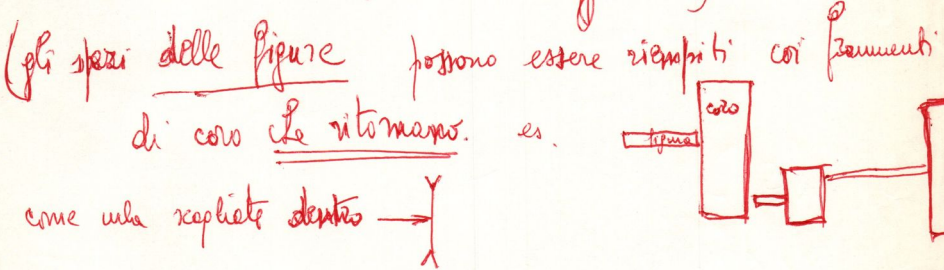 (gli spazi delle figure possono essere riempiti coi frammenti
di coro che ritornano. es. figura coro
come urla scagliate dentro